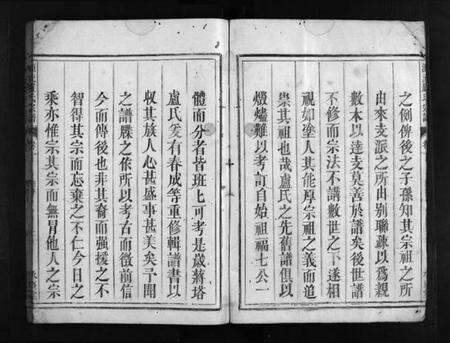 之例俾後之子孫知其宗祖之所
由來支派之所由別聯疎以爲親
數本以達支莫善於譜矣後世譜
不修而宗法不講數世之下遂相
視如塗人其能厚宗祖之義而追
崇其祖也哉盧氏之先舊譜俱以
燬爐難以考訂自始祖福七公一
體而分者皆班上可考是歲蔣塔
盧氏爰有春成等重修輯譜書以
収其族人心甚盛事甚美矣予聞
之譜牒之依所以考古而徵前信
今而傳後也非其裔而強援之不
智得其宗而忘棄之不仁今日之
乘亦惟宗其宗而無冒他人之宗